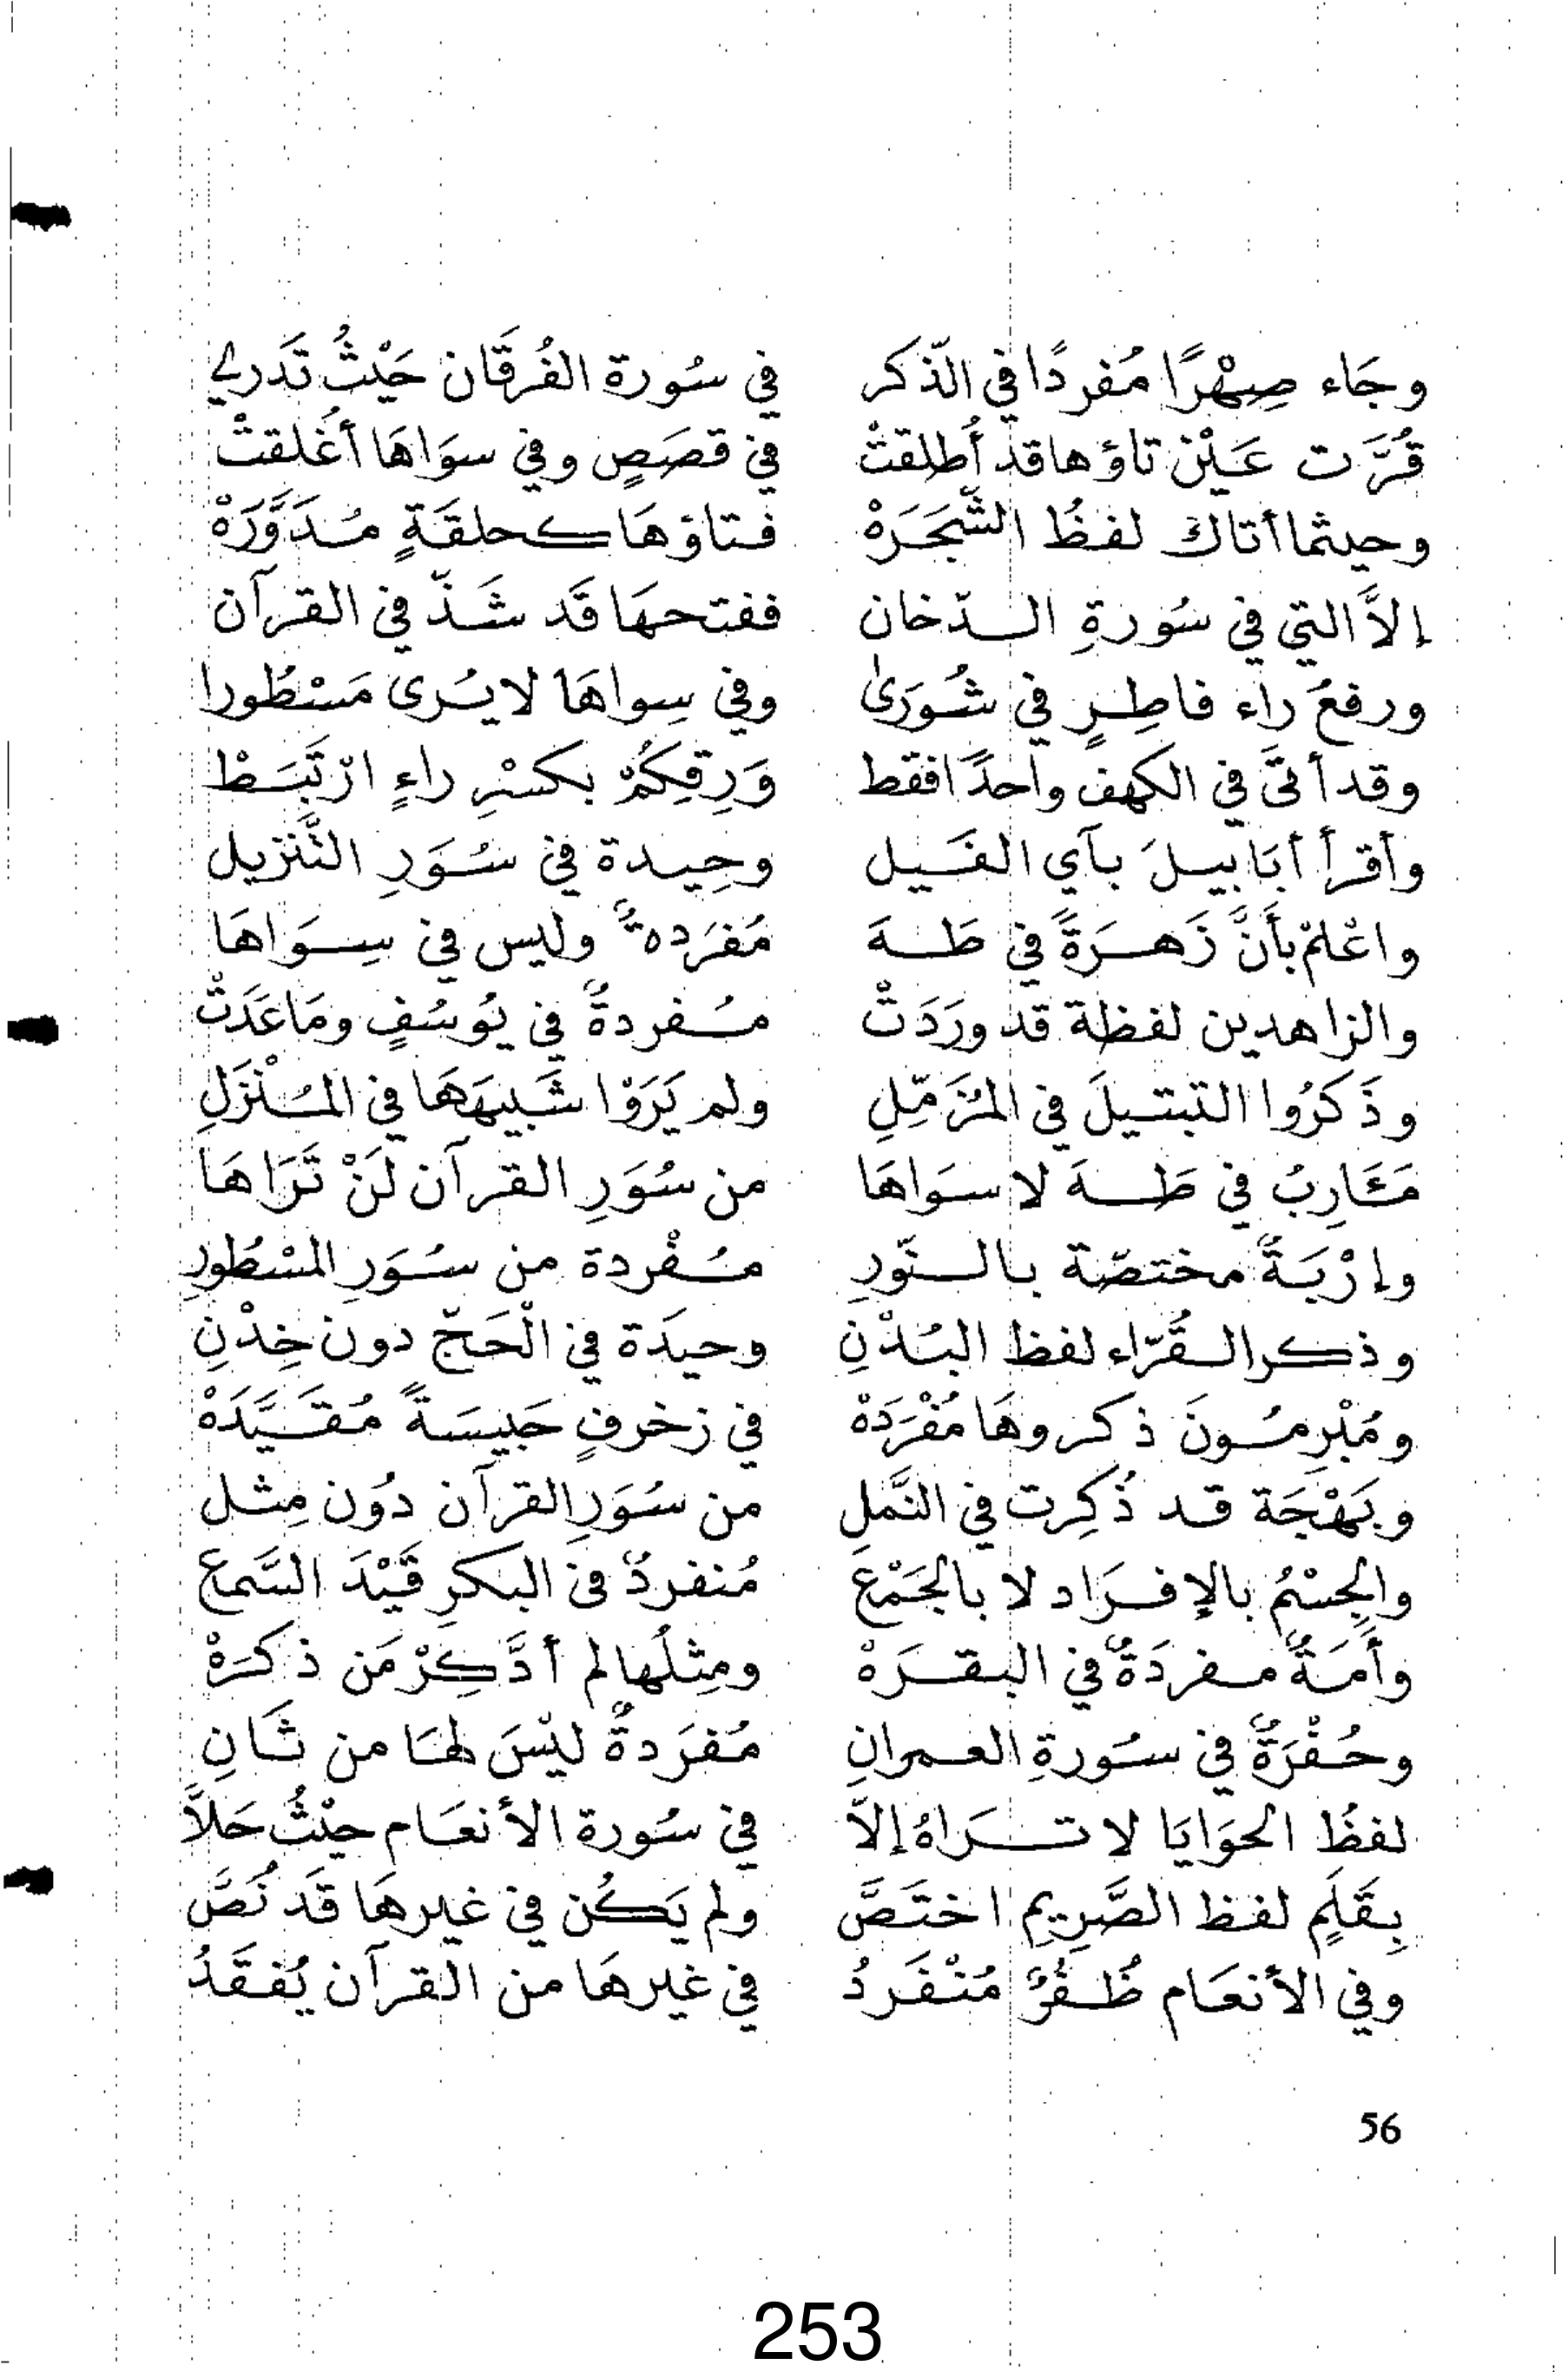 وجَاء صِهْرًا مُفردًا في الذّكر في سُورة الفُرقَان حَيْثُ تَدري
قُرَّت عَيْن تاؤها قد أُطلقتْ في قصَصٍ وفي سوَاهَا أُغلقتْ
وحيثما أتاك لفظُ الشَّجَرَهْ فتاؤهَا كحلقَةٍ مُدَوَّرَهْ
إلاَّ التي في سُورةِ الدّخان ففتحهَا قَد شَذّ في القرآن
ورفعُ راء فاطِرٍ في شُورَىٰ وفي سِواهَا لا يُرى مَسْطُورا
وقد أتَى في الكهف واحدًا فقط وَرِقِكُمْ بكسْرِ راءٍ ارْتَبَطْ
وأقرأ أبَابيلَ بآي الفَيل وحِيدة في سُوَرِ التَّنزيل
واعْلمْ بأَنَّ زَهرَةً في طَهَ مُفرَدهٌ وليس في سِوَاهَا
والزاهدين لفظة قد ورَدَتْ مُفردةٌ في يُوسُفٍ ومَا عَدَتْ
وذَكرُوا التبتيلَ في المُزَمّلِ ولم يَرَوْا شَبيهَهَا في المُنْزَلِ
مَئَارِبُ في طَهَ لا سوَاهَا من سُوَرِ القرآن لَنْ تَرَاهَا
وإرْبَةٌ مختصّة بالنّورِ مُفْردة من سُوَرِ المسْطُورِ
وذكر القُرّاء لفظ البُدْنِ وحيدَة في الْحَجّ دون خِدْنِ
ومُبْرِمُونَ ذكروهَا مُفْرَدَهْ في زخرفٍ حَبيسَةً مُقَيَّدَهْ
وبَهْجَة قد ذُكِرت في النَّملِ من سُوَرِ القرآن دُون مِثل
والجِسْمُ بالإفرَاد لا بالجَمْعَ مُنفردٌ في البكرِ قَيْدَ السَّمع
وأَمَةٌ مفردَةٌ في البقرَهْ ومِثلُها لم أدَّكِرْ مَن ذكرَهْ
وحُفْرَةٌ في سُورةِ العمرانِ مُفرَدةٌ ليْسَ لهَا من ثَانِ
لفظُ الحوَايَا لا ترَاهُ إلاّ في سُورة الأنعَام حيْثُ حَلاَّ
بِقَلَمٍ لفظ الصَّرِيمِ اختَصَّ ولم يَكُن في غيرهَا قَد نُصَّ
وفي الأنعَام ظُفُرٌ مُنْفَردُ في غيرهَا من القرآن يُفقَدُ
56
253